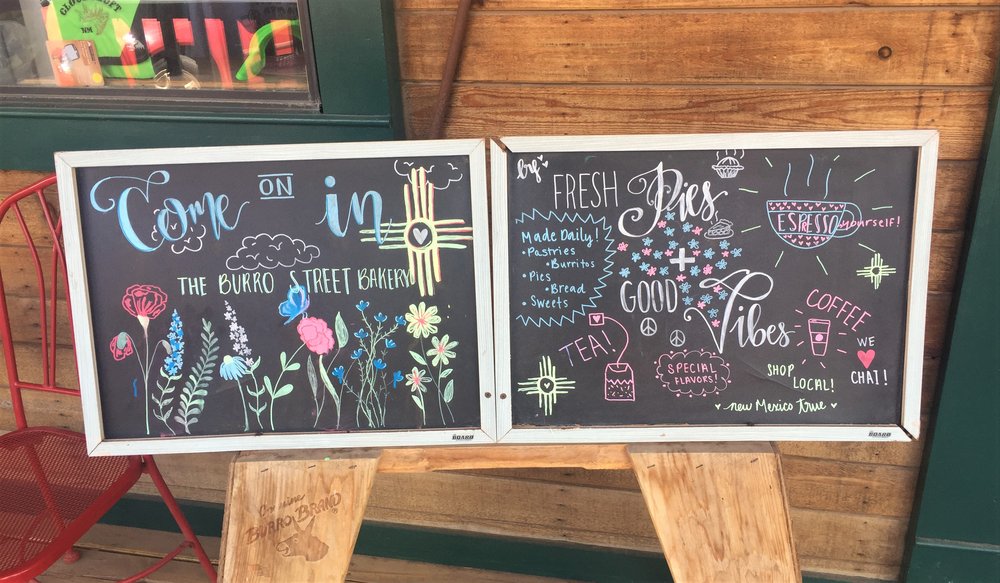 CLOUDCROFT
NM
Come ON in
THE BURRO STREET BAKERY
BOARD
by
FRESH Pies
Made Daily!
• Pastries
• Burritos
• Pies
• Bread
• Sweets
+
GOOD Vibes
ESPRESSO yourself!
TEA!
SPECIAL
FLAVORS!
COFFEE
WE
CHAI!
SHOP
LOCAL!
new Mexico true
BOARD
Genuine
BURRO BRAND